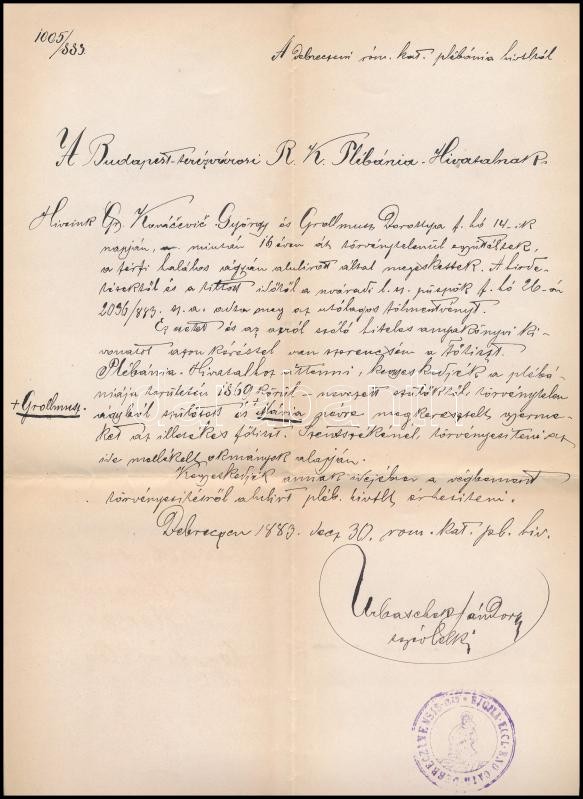 1005/883.
A debreczeni róm. kat. plébánia hivatal
A Budapest-terézvárosi R. K. Plébánia-Hivatalnak.
Híveink Kovačevič György és Grollmusz f. hó 14.-ik
napján, mintán 16 éven át törvénytelenül együttéltek,
a férfi halálos ágyán alulirott által megeskettek. A hirde-
tésektől és a tiltott időtől a nváradi l. sz. püspök f. hó 26-án
2096/883. sz. a. adta meg az utólagos fölmentvényt.
Ez esetet és az apról szóló hiteles anyakönyvi ki-
vonatot azon kéréssel van szerencsém a Főtiszt.
Plébánia-Hivatalhoz áttenni, kegyeskedjék a plébá-
niája területén 1869 körül nevezett szülőktől törvénytelen
+ Grollmusz. ágyból szülötett és + Mária névre megkeresztelt gyerme-
ket az illetékes főtiszt. Szentszékénél törvényesíttetni az
ide mellékelt okmányok alapján.
Kegyeskedjék annak idejében a véghezment
törvényesítésről alulirt pléb. hivatalt értesíteni.
Debreczen 1883. decz 30. rom. kat. pb. hiv.
Urbaschek Sándor